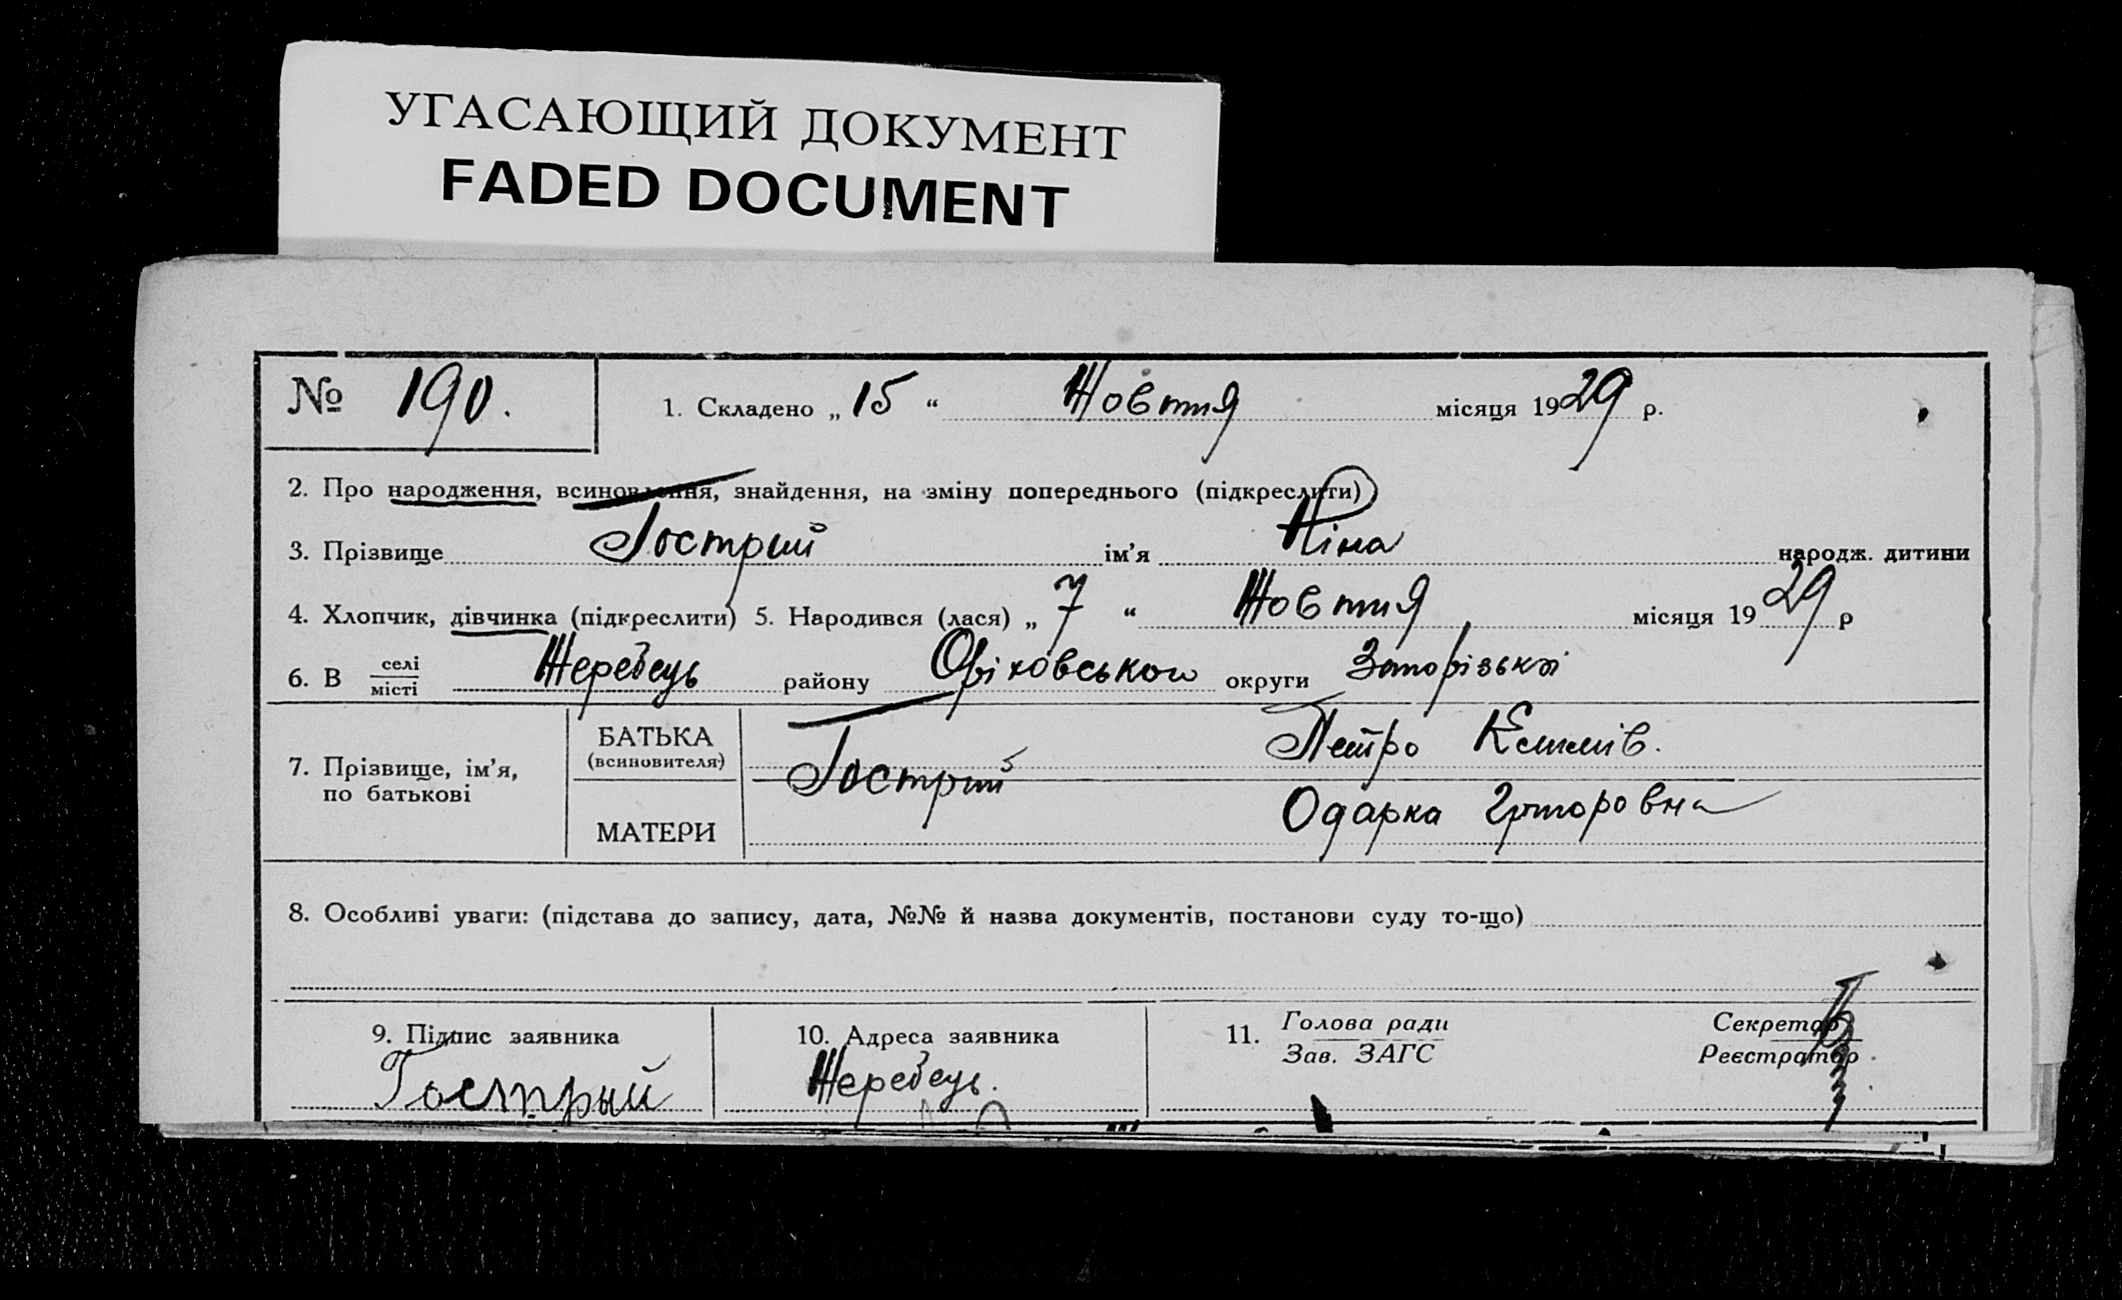 УГАСАЮЩИЙ ДОКУМЕНТ
FADED DOCUMENT
№ 190. 1. Складено „ 15 “ Жовтня місяця 1929 р.
2. Про народження, всиновлення, знайдення, на зміну попереднього (підкреслити)
3. Прізвище Гострий ім’я Ніна народж. дитини
4. Хлопчик, дівчинка (підкреслити) 5. Народився (лася) „ 7 “ Жовтня місяця 1929 р
6. В селі місті Жеребець району Оріховського округи Запорізької
7. Прізвище, ім’я, по батькові
БАТЬКА (всиновителя) Гострий Петро
МАТЕРИ Одарка Григоровна
8. Особливі уваги: (підстава до запису, дата, №№ й назва документів, постанови суду то-що)
9. Підпис заявника 10. Адреса заявника 11. Голова ради Секретар
Зав. ЗАГС Реєстратор
Гострый Жеребець.